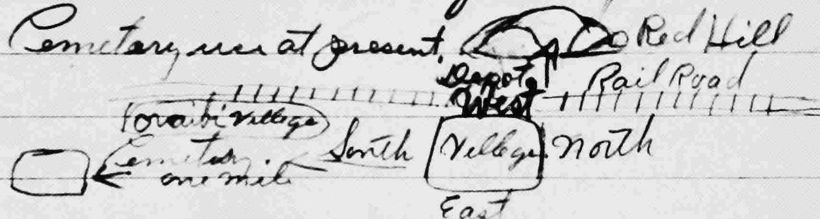 Cemetary use at present.
Red Hill
Depot
Rail Road
West
Village
South
Village
North
Cemetary
one mile
East